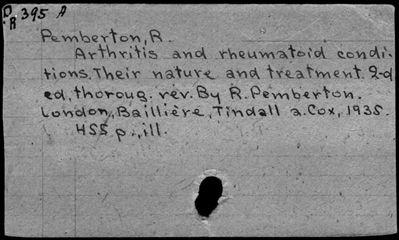 D
R 395 A
Pemberton, R.
Arthritis and rheumatoid condi-
tions. Their nature and treatment. 2-d
ed., thoroug. rev. By R. Pemberton.
London, Baillière, Tindall a. Cox, 1935.
455 p., ill.